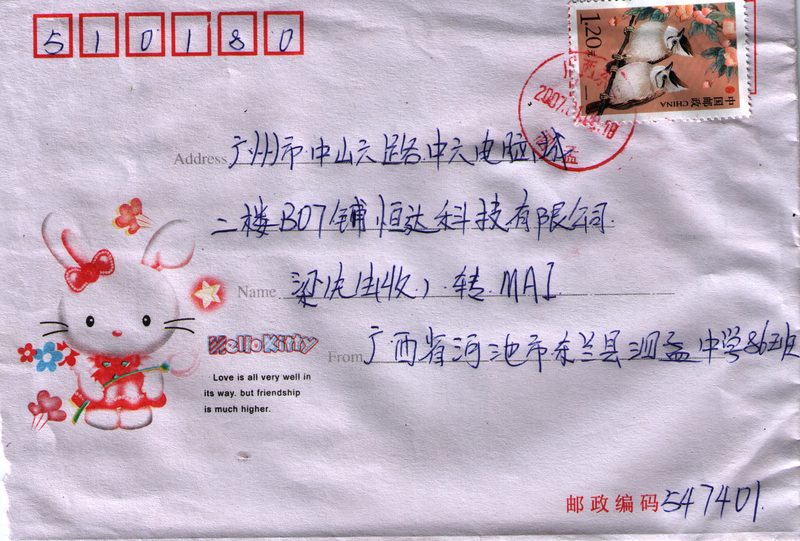 510180
1.20元
中国邮政 CHINA
2007.
18
Address 广州市中山六路中六电脑城
二楼B07铺恒达科技有限公司
Name 梁先生(收)转MAI
Hello Kitty
From 广西省河池市东兰县泗孟中学86班
Love is all very well in
its way. but friendship
is much higher.
邮政编码 547401